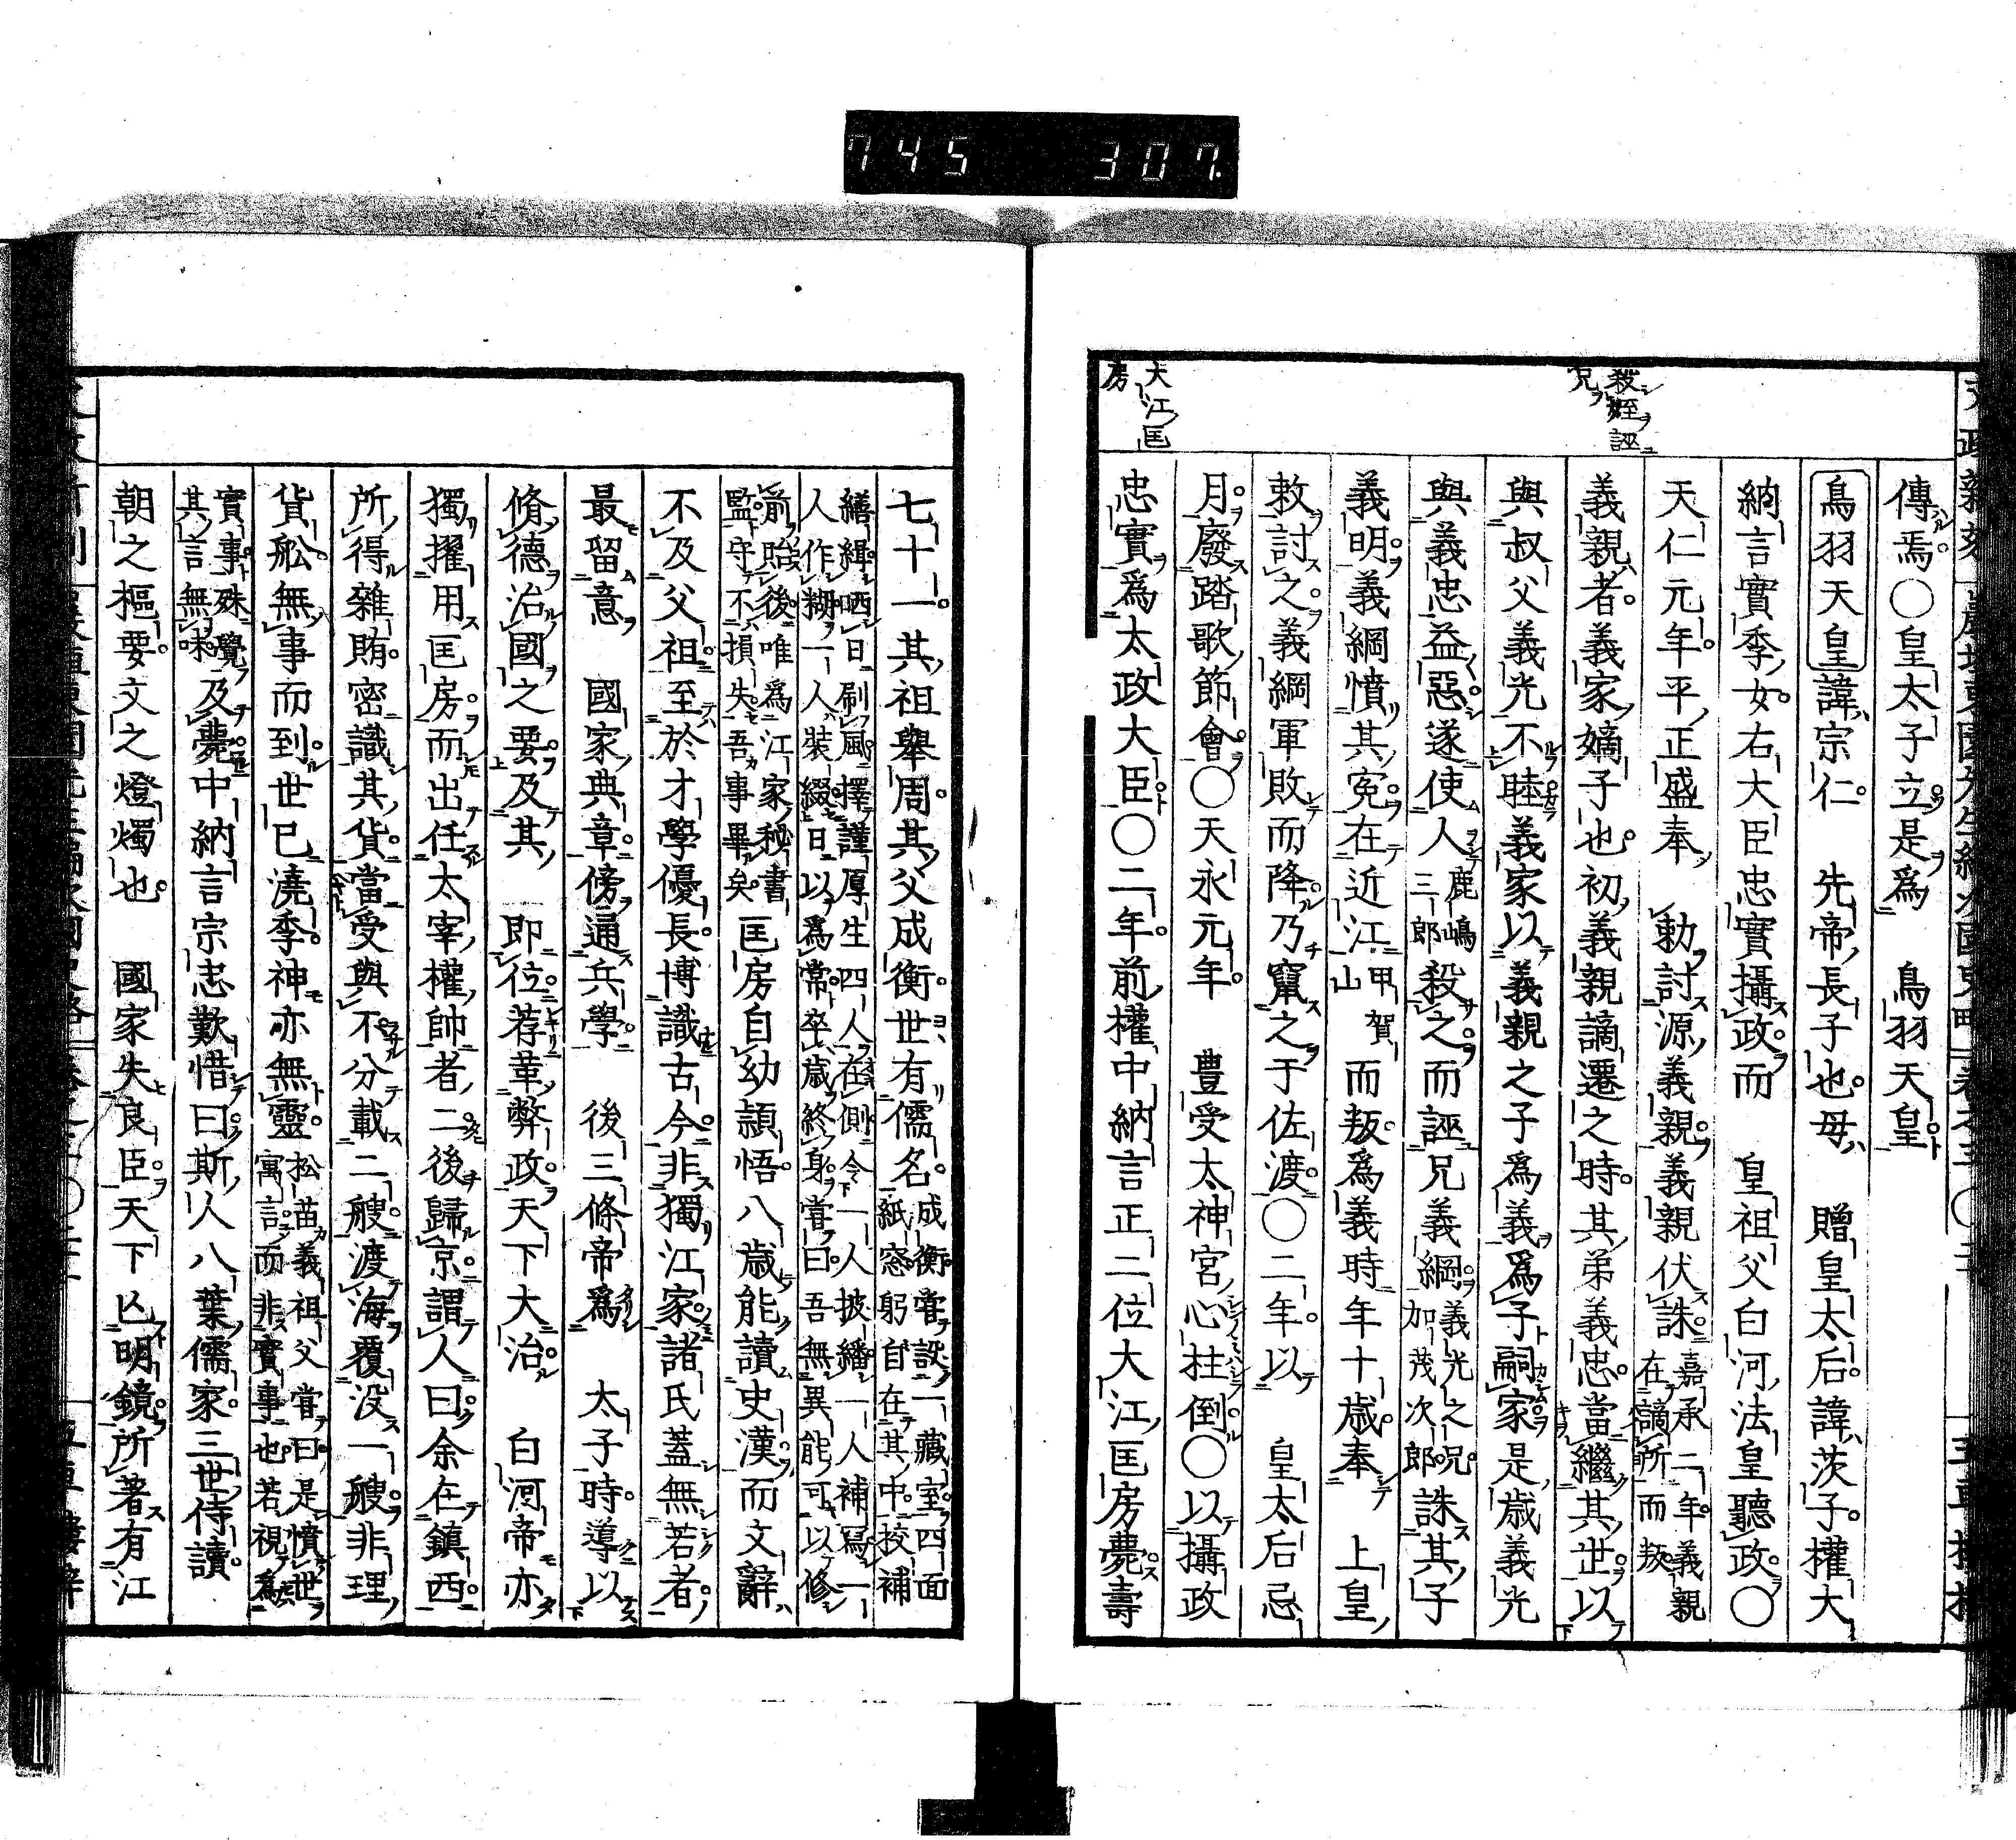 745 307.
殺姪誣
兄
大江匡
房
傳焉〇皇太子立是爲 鳥羽天皇
鳥羽天皇諱宗仁 先帝長子也母 贈皇太后諱茨子權大
納言實季女右大臣忠實攝政而 皇祖父白河法皇聽政〇
天仁元年平正盛奉 勅討源義親義親伏誅嘉承二年義親在謫所而叛
義親者義家嫡子也初義親謫遷之時其弟義忠當繼其世以
與叔父義光不睦義家以義親之子爲義爲子嗣家是歲義光
與義忠益惡遂使人鹿嶋三郎殺之而誣兄義綱義光之兄加茂次郎誅其子
義明義綱憤其寃在近江甲賀山而叛爲義時年十歲奉 上皇
敕討之義綱軍敗而降乃竄之于佐渡〇二年以 皇太后忌
月廢踏歌節會〇天永元年 豊受太神宮心柱倒〇以攝政
忠實爲太政大臣〇二年前權中納言正二位大江匡房薨壽
七十一其祖舉周其父成衡世有儒名成衡嘗設一藏室四面紙窓躬自在其中挍補
繕緝哂日刷風擇謹厚生四人在側令一人披繙一人補寫一人作糊一人裝綴日以爲常卒歲終身嘗曰吾無異能可以修
前貽後唯爲江家秘書監守不損失吾事畢矣匡房自幼頴悟八歲能讀史漢而文辭
不及父祖至於才學優長博識古今非獨江家諸氏蓋無若者
最留意 國家典章傍通兵學 後三條帝爲 太子時導以
脩德治國之要及其 即位荐革弊政天下大治 白河帝亦
獨擢用匡房而出任太宰權帥者二後歸京謂人曰余在鎮西
所得雜賄密識其貨當受與不分載二艘渡海覆没一艘非理
貨舩無事而到世已澆季神亦無靈松苗義祖父嘗曰是憤世寓言而非實事也若視爲
實事殊覺其言無味及薨中納言宗忠歎惜曰斯人八葉儒家三世侍讀
朝之樞要文之燈燭也 國家失良臣天下亾明鏡所著有江